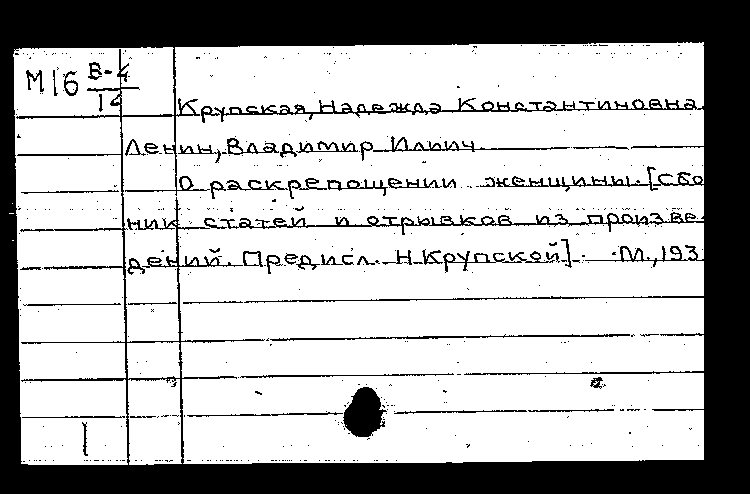 М16 В-4
14
Крупская, Надежда Константиновна.
Ленин, Владимир Ильич.
О раскрепощении женщины. [Сбо
ник статей и отрывков из произве-
дений. Предисл. Н Крупской]. М., 193